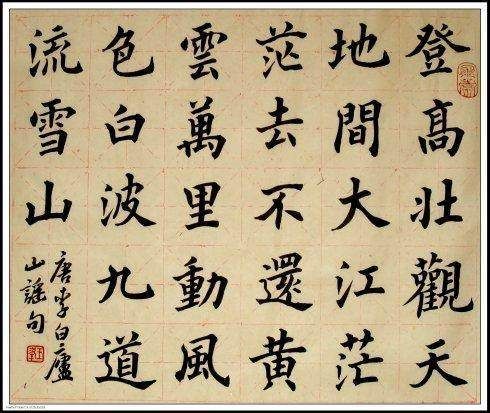 登高壯觀天
地間大江茫
茫去不還黃
雲萬里動風
色白波九道
流雪山
唐李白廬
山謠句